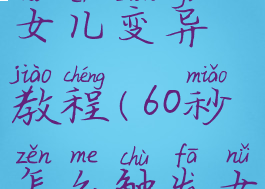 女儿变异
jiào chéng miǎo
教程(60秒
zěn me chù fā nǚ
怎么触发女